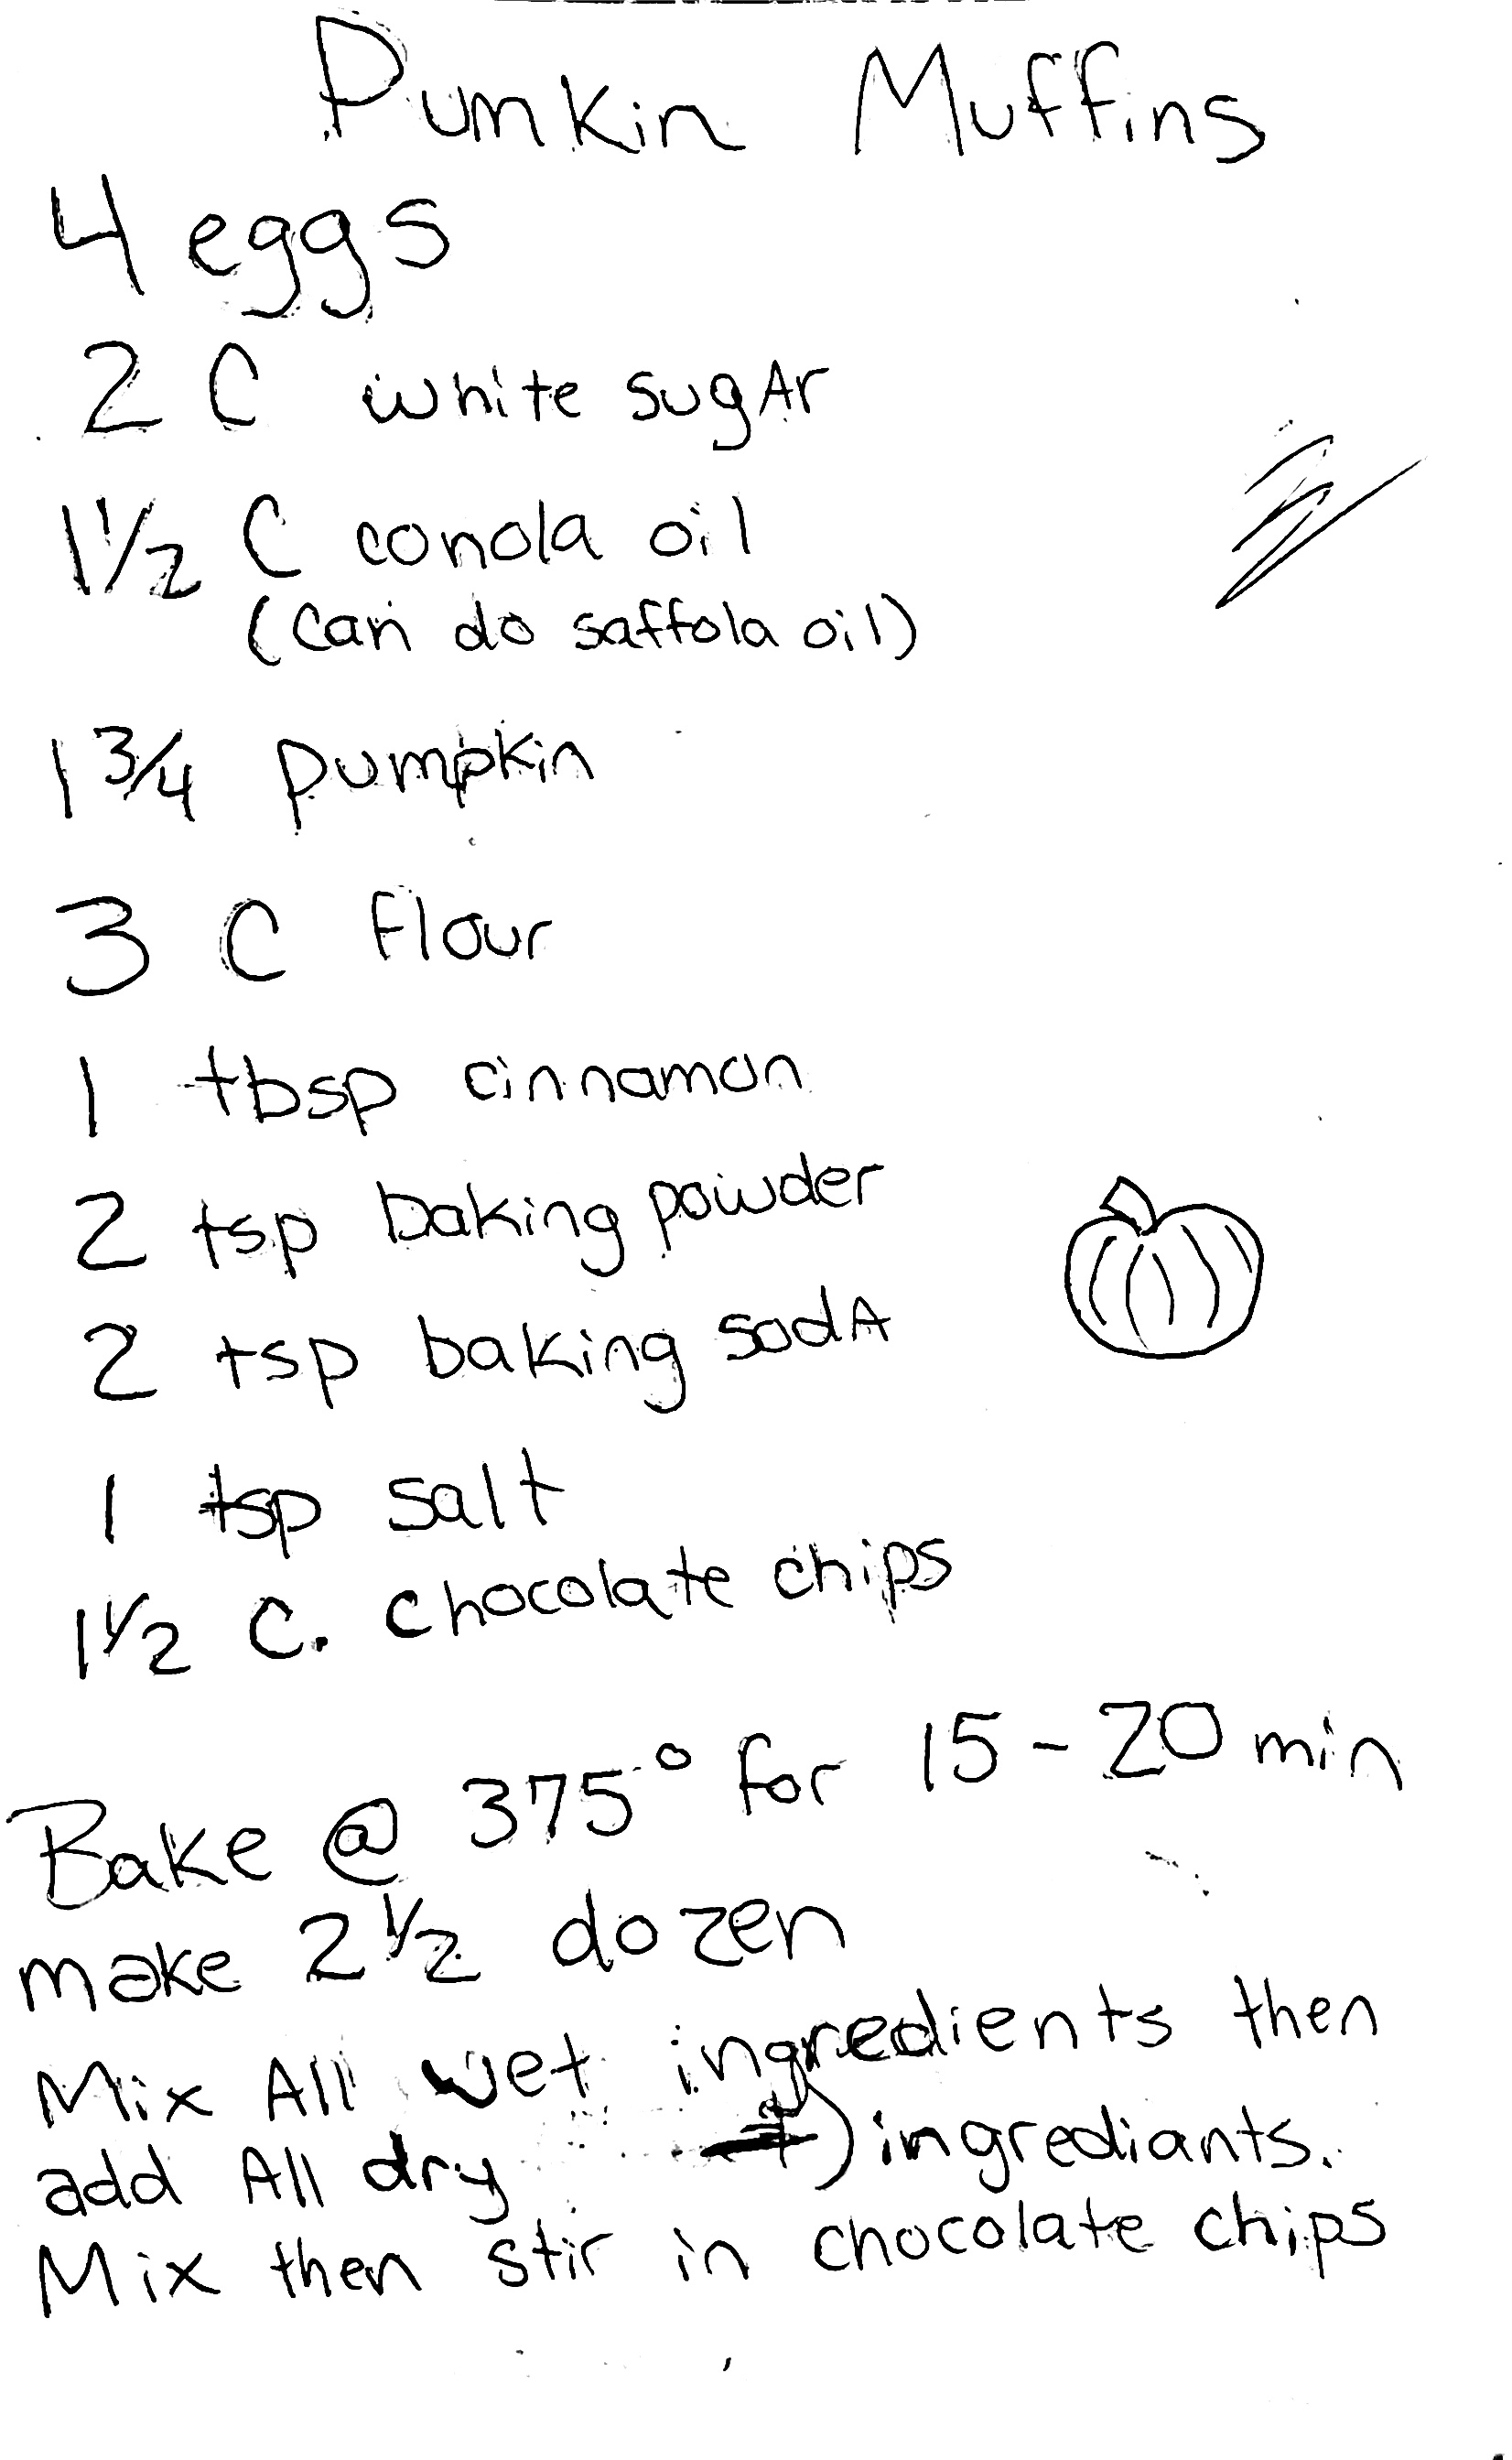 Pumkin Muffins
4 eggs
2 C white sugAr
1 1/2 C conola oil
(can do saffola oil)
1 3/4 pumpkin
3 C flour
1 tbsp cinnamon
2 tsp baking powder
2 tsp baking sodA
1 tsp salt
1 1/2 C. chocolate chips
Bake @ 375° for 15 - 20 min
make 2 1/2 dozen
Mix All wet ingredients then
add All dry ingrediants.
Mix then stir in chocolate chips